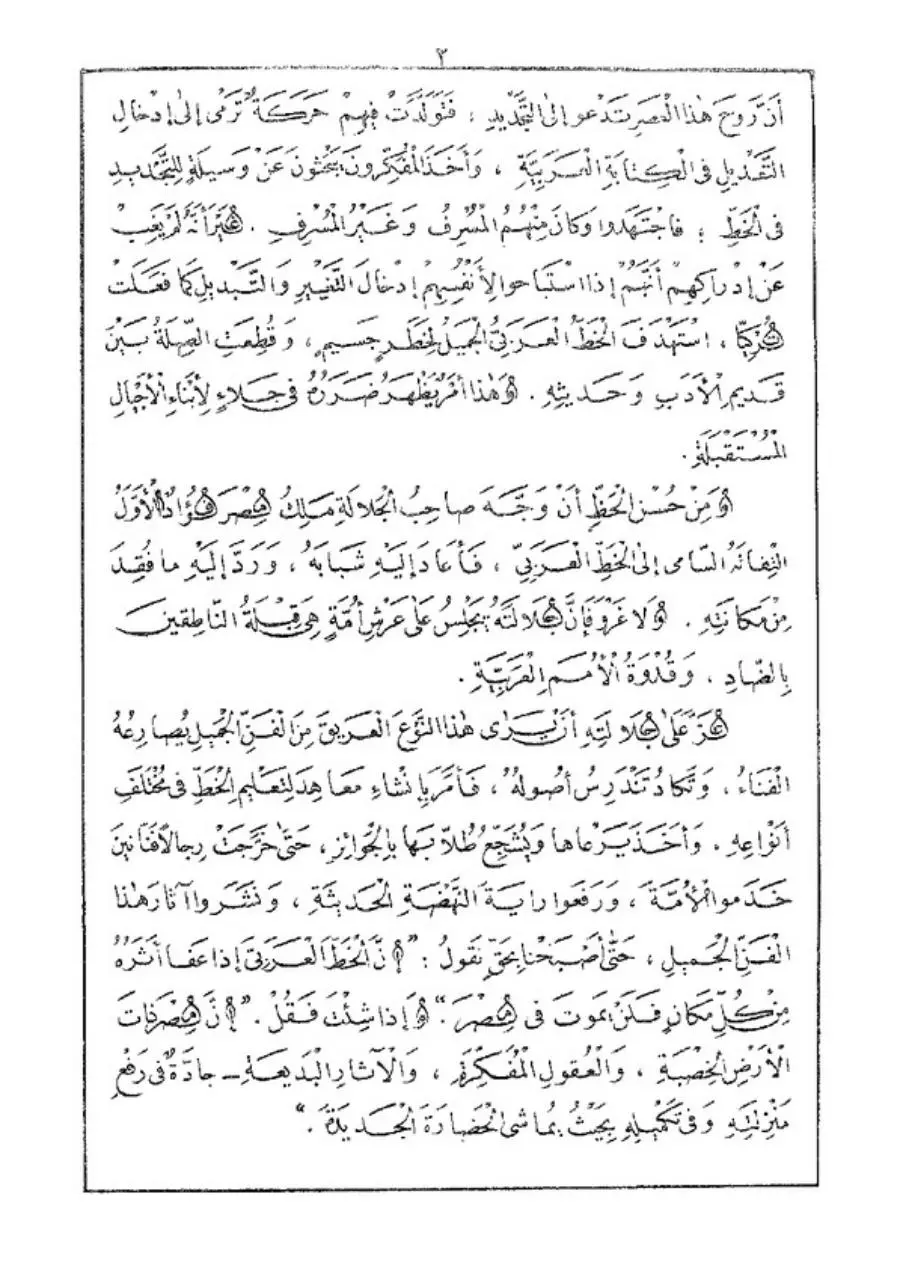 ٣
أَنَّ رُوحَ هٰذَا الْعَصْرِ تَدْعُو إِلَى التَّجْدِيدِ ؛ فَتَوَلَّدَتْ فِيهِمْ حَرَكَةٌ تَرْمِى إِلَى إِدْخَالِ
التَّعْدِيلِ فِى الْكِتَابَةِ الْعَرَبِيَّةِ ، وَأَخَذَ الْمُفَكِّرُونَ يَبْحَثُونَ عَنْ وَسِيلَةٍ لِلتَّجْدِيدِ
فِى الْخَطِّ ؛ فَاجْتَهَدُوا وَكَانَ مِنْهُمُ الْمُسْرِفُ وَغَيْرُ الْمُسْرِفِ . غَيْرَ أَنَّهُ لَمْ يَغِبْ
عَنْ إِدْرَاكِهِمْ أَنَّهُمْ إِذَا اسْتَبَاحُوا لِأَنْفُسِهِمْ إِدْخَالَ التَّغْيِيرِ وَالتَّبْدِيلِ كَمَا فَعَلَتْ
تُرْكِيَّا ، اسْتَهْدَفَ الْخَطُّ الْعَرَبِىُّ الْجَمِيلُ لِخَطَرٍ جَسِيمٍ ، وَقُطِعَتِ الصِّلَةُ بَيْنَ
قَدِيمِ الْأَدَبِ وَحَدِيثِهِ . وَهٰذَا أَمْرٌ يَظْهَرُ ضَرَرُهُ فِى جَلَاءٍ لِأَبْنَاءِ الْأَجْيَالِ
الْمُسْتَقْبَلَةِ .
وَمِنْ حُسْنِ الْحَظِّ أَنْ وَجَّهَ صَاحِبُ الْجَلَالَةِ مَلِكُ مِصْرَ فُؤَادٌ الْأَوَّلُ
الْتِفَاتَهُ السَّامِى إِلَى الْخَطِّ الْعَرَبِىِّ ، فَأَعَادَ إِلَيْهِ شَبَابَهُ ، وَرَدَّ إِلَيْهِ مَا فُقِدَ
مِنْ مَكَانَتِهِ . وَلَا غَرْوَ فَإِنَّ جَلَالَتَهُ يَجْلِسُ عَلَى عَرْشِ أُمَّةٍ هِىَ قِبْلَةُ النَّاطِقِينَ
بِالضَّادِ ، وَقُدْوَةُ الْأُمَمِ الْعَرَبِيَّةِ .
عَزَّ عَلَى جَلَالَتِهِ أَنْ يَرَى هٰذَا النَّوْعَ الْعَرِيقَ مِنَ الْفَنِّ الْجَمِيلِ يُصَارِعُهُ
الْفَنَاءُ ، وَتَكَادُ تَنْدَرِسُ أُصُولُهُ ، فَأَمَرَ بِإِنْشَاءِ مَعَاهِدَ لِتَعْلِيمِ الْخَطِّ فِى مُخْتَلَفِ
أَنْوَاعِهِ . وَأَخَذَ يَرْعَاهَا وَيُشَجِّعُ طُلَّابَهَا بِالْجَوَائِزِ ، حَتَّى خَرَّجَتْ رِجَالًا فَنَّانِينَ
خَدَمُوا الْأُمَّةَ ، وَرَفَعُوا رَايَةَ النَّهْضَةِ الْحَدِيثَةِ ، وَنَشَرُوا آثَارَ هٰذَا
الْفَنِّ الْجَمِيلِ ، حَتَّى أَصْبَحْنَا بِحَقٍّ نَقُولُ : "إِنَّ الْخَطَّ الْعَرَبِىَّ إِذَا عَفَا أَثَرُهُ
مِنْ كُلِّ مَكَانٍ فَلَنْ يَمُوتَ فِى مِصْرَ ." وَإِذَا شِئْتَ فَقُلْ . "إِنَّ مِصْرَ ذَاتَ
الْأَرْضِ الْخِصْبَةِ ، وَالْعُقُولِ الْمُفَكِّرَةِ ، وَالْآثَارِ الْبَدِيعَةِ ــ جَادَّةٌ فِى رَفْعِ
مَنْزِلَتِهِ وَفِى تَكْمِيلِهِ بِحَيْثُ يُمَاشِى الْحَضَارَةَ الْجَدِيدَةَ ."